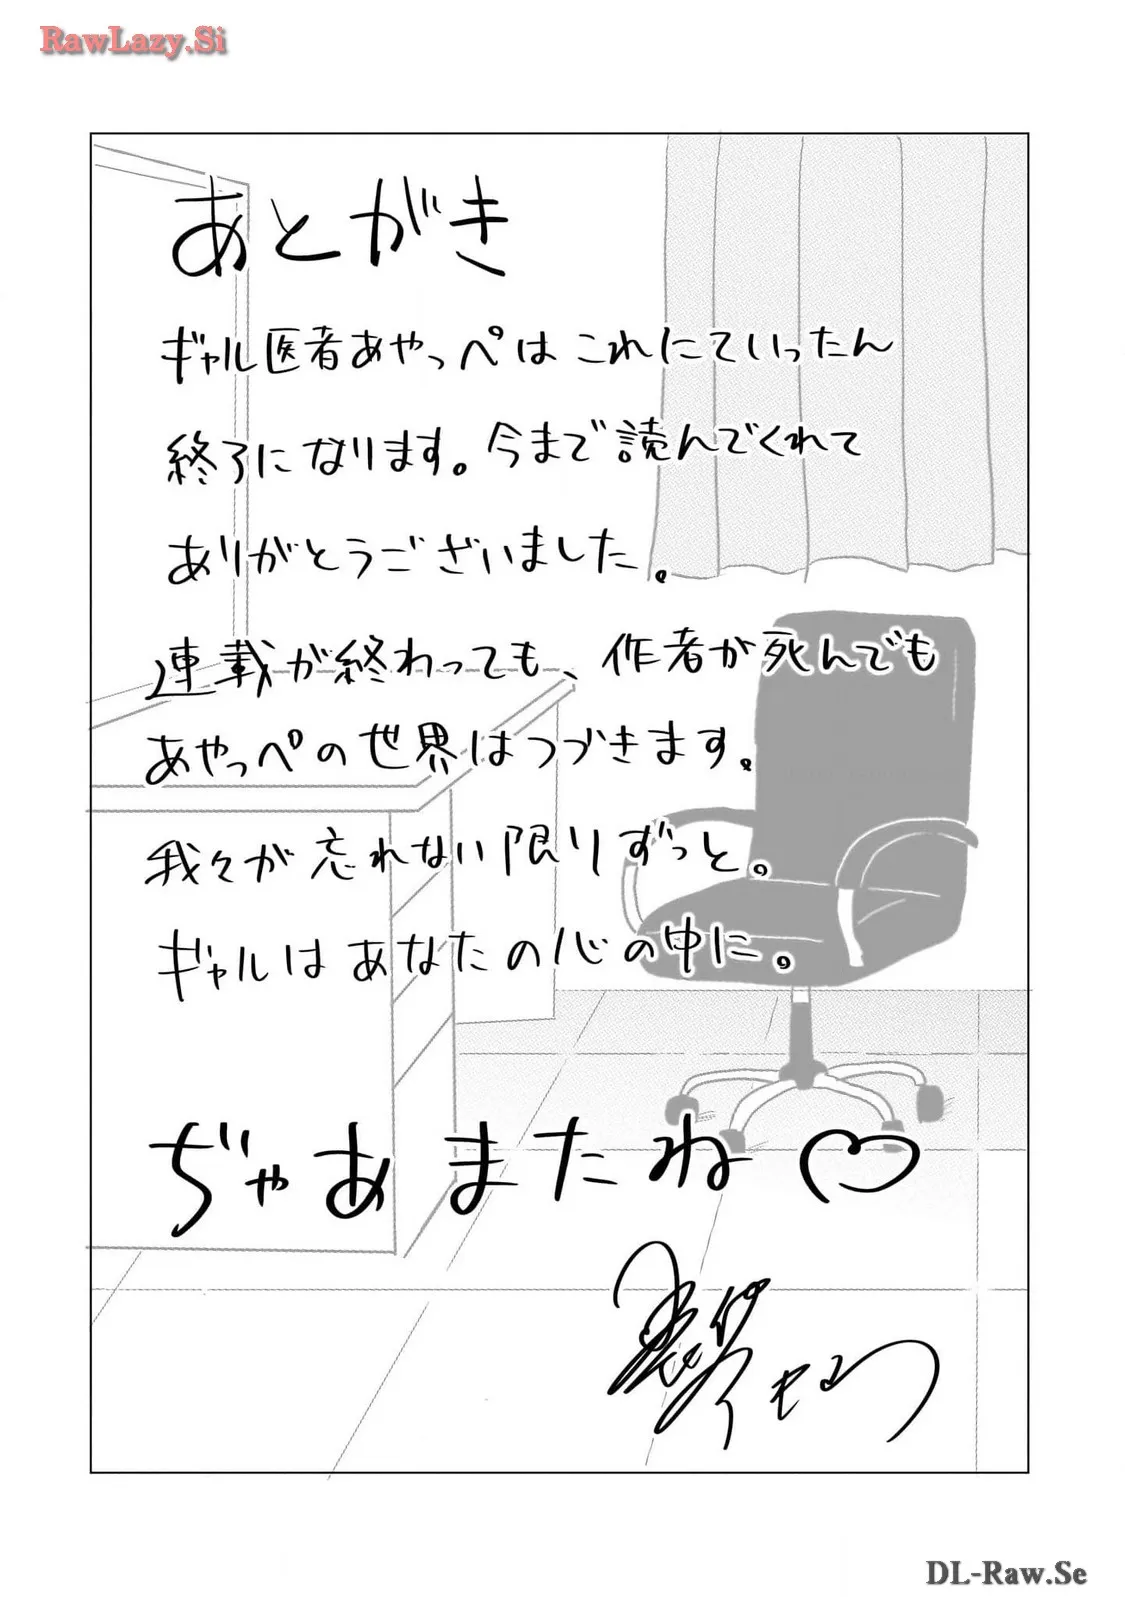 RawLazy.Si
あとがき
ギャル医者あやっぺはこれにていったん
終了になります。今まで読んでくれて
ありがとうございました。
連載が終わっても、作者が死んでも
あやっぺの世界はつづきます。
我々が忘れない限りずっと。
ギャルはあなたの心の中に。
ぢゃあまたね♡
DL-Raw.Se